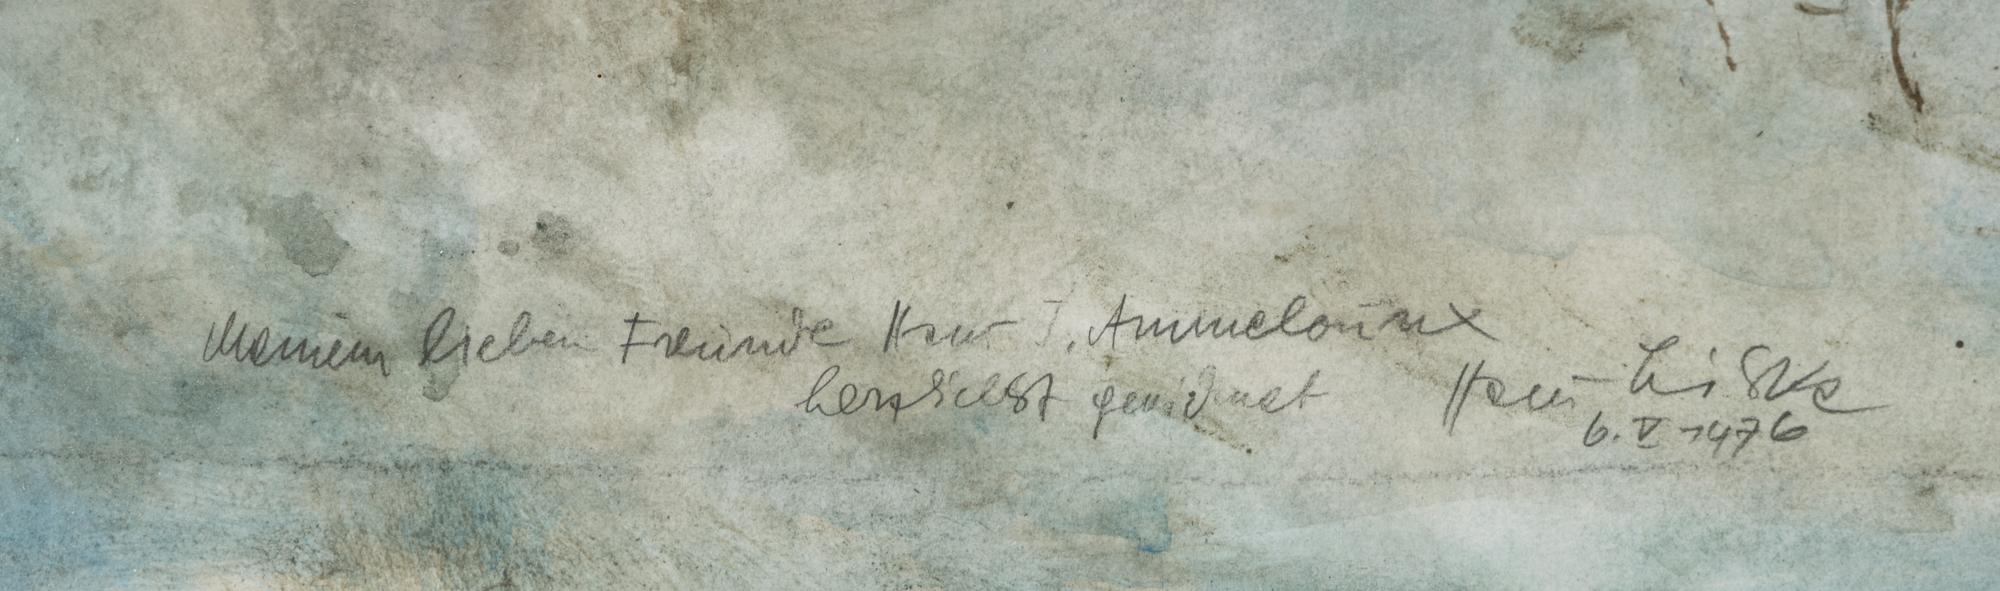 Meinem lieben Freunde Hans J. Ammelounx
herzlichst gewidmet Hans Liska
6. V 1976